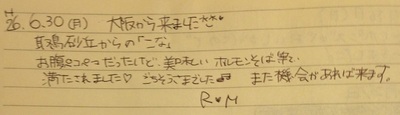 H26.6.30(月) 大阪から来ました
鳥取砂丘からの「こな」
お腹ペコペコだったけど、美味しい ホルモンそば
満たされました♡ ごちそうさまでした また機会があれば来ます。
R♥M